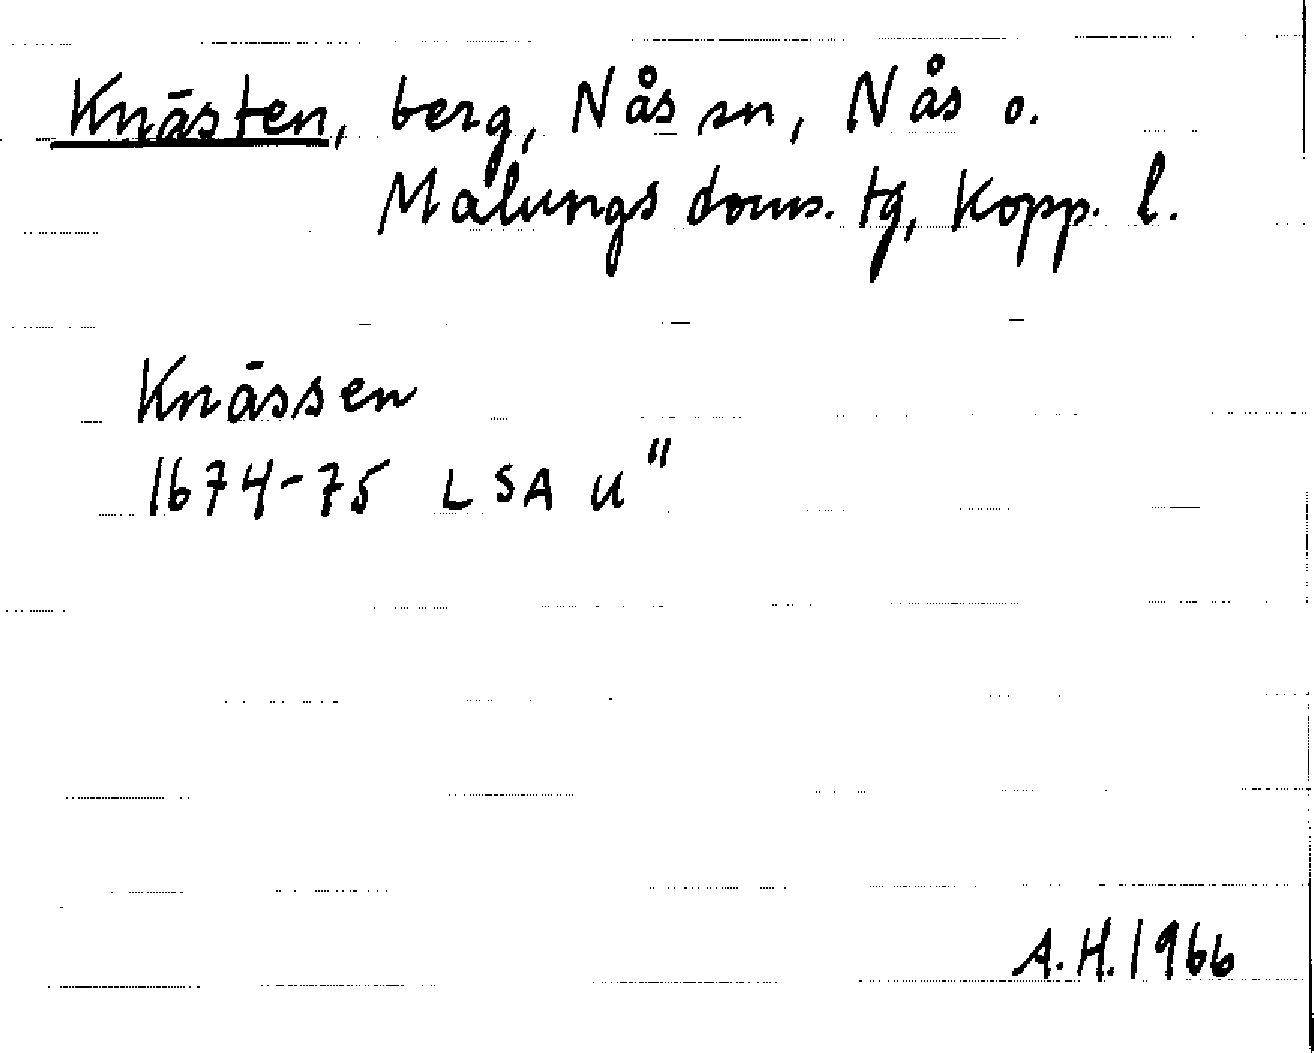 Knästen, berg, Nås sn, Nås o.
Malungs doms. tg, Kopp. l.
Knässen
1674-75 LSA U"
A.H. 1966